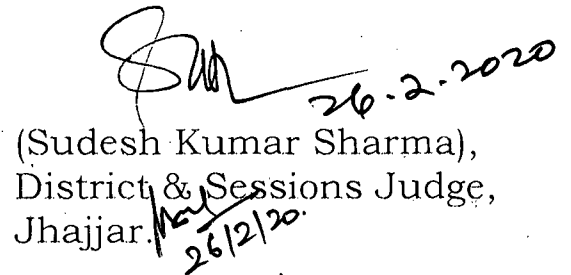 26.2.2020
(Sudesh Kumar Sharma),
District & Sessions Judge,
Jhajjar.
26/2/20.